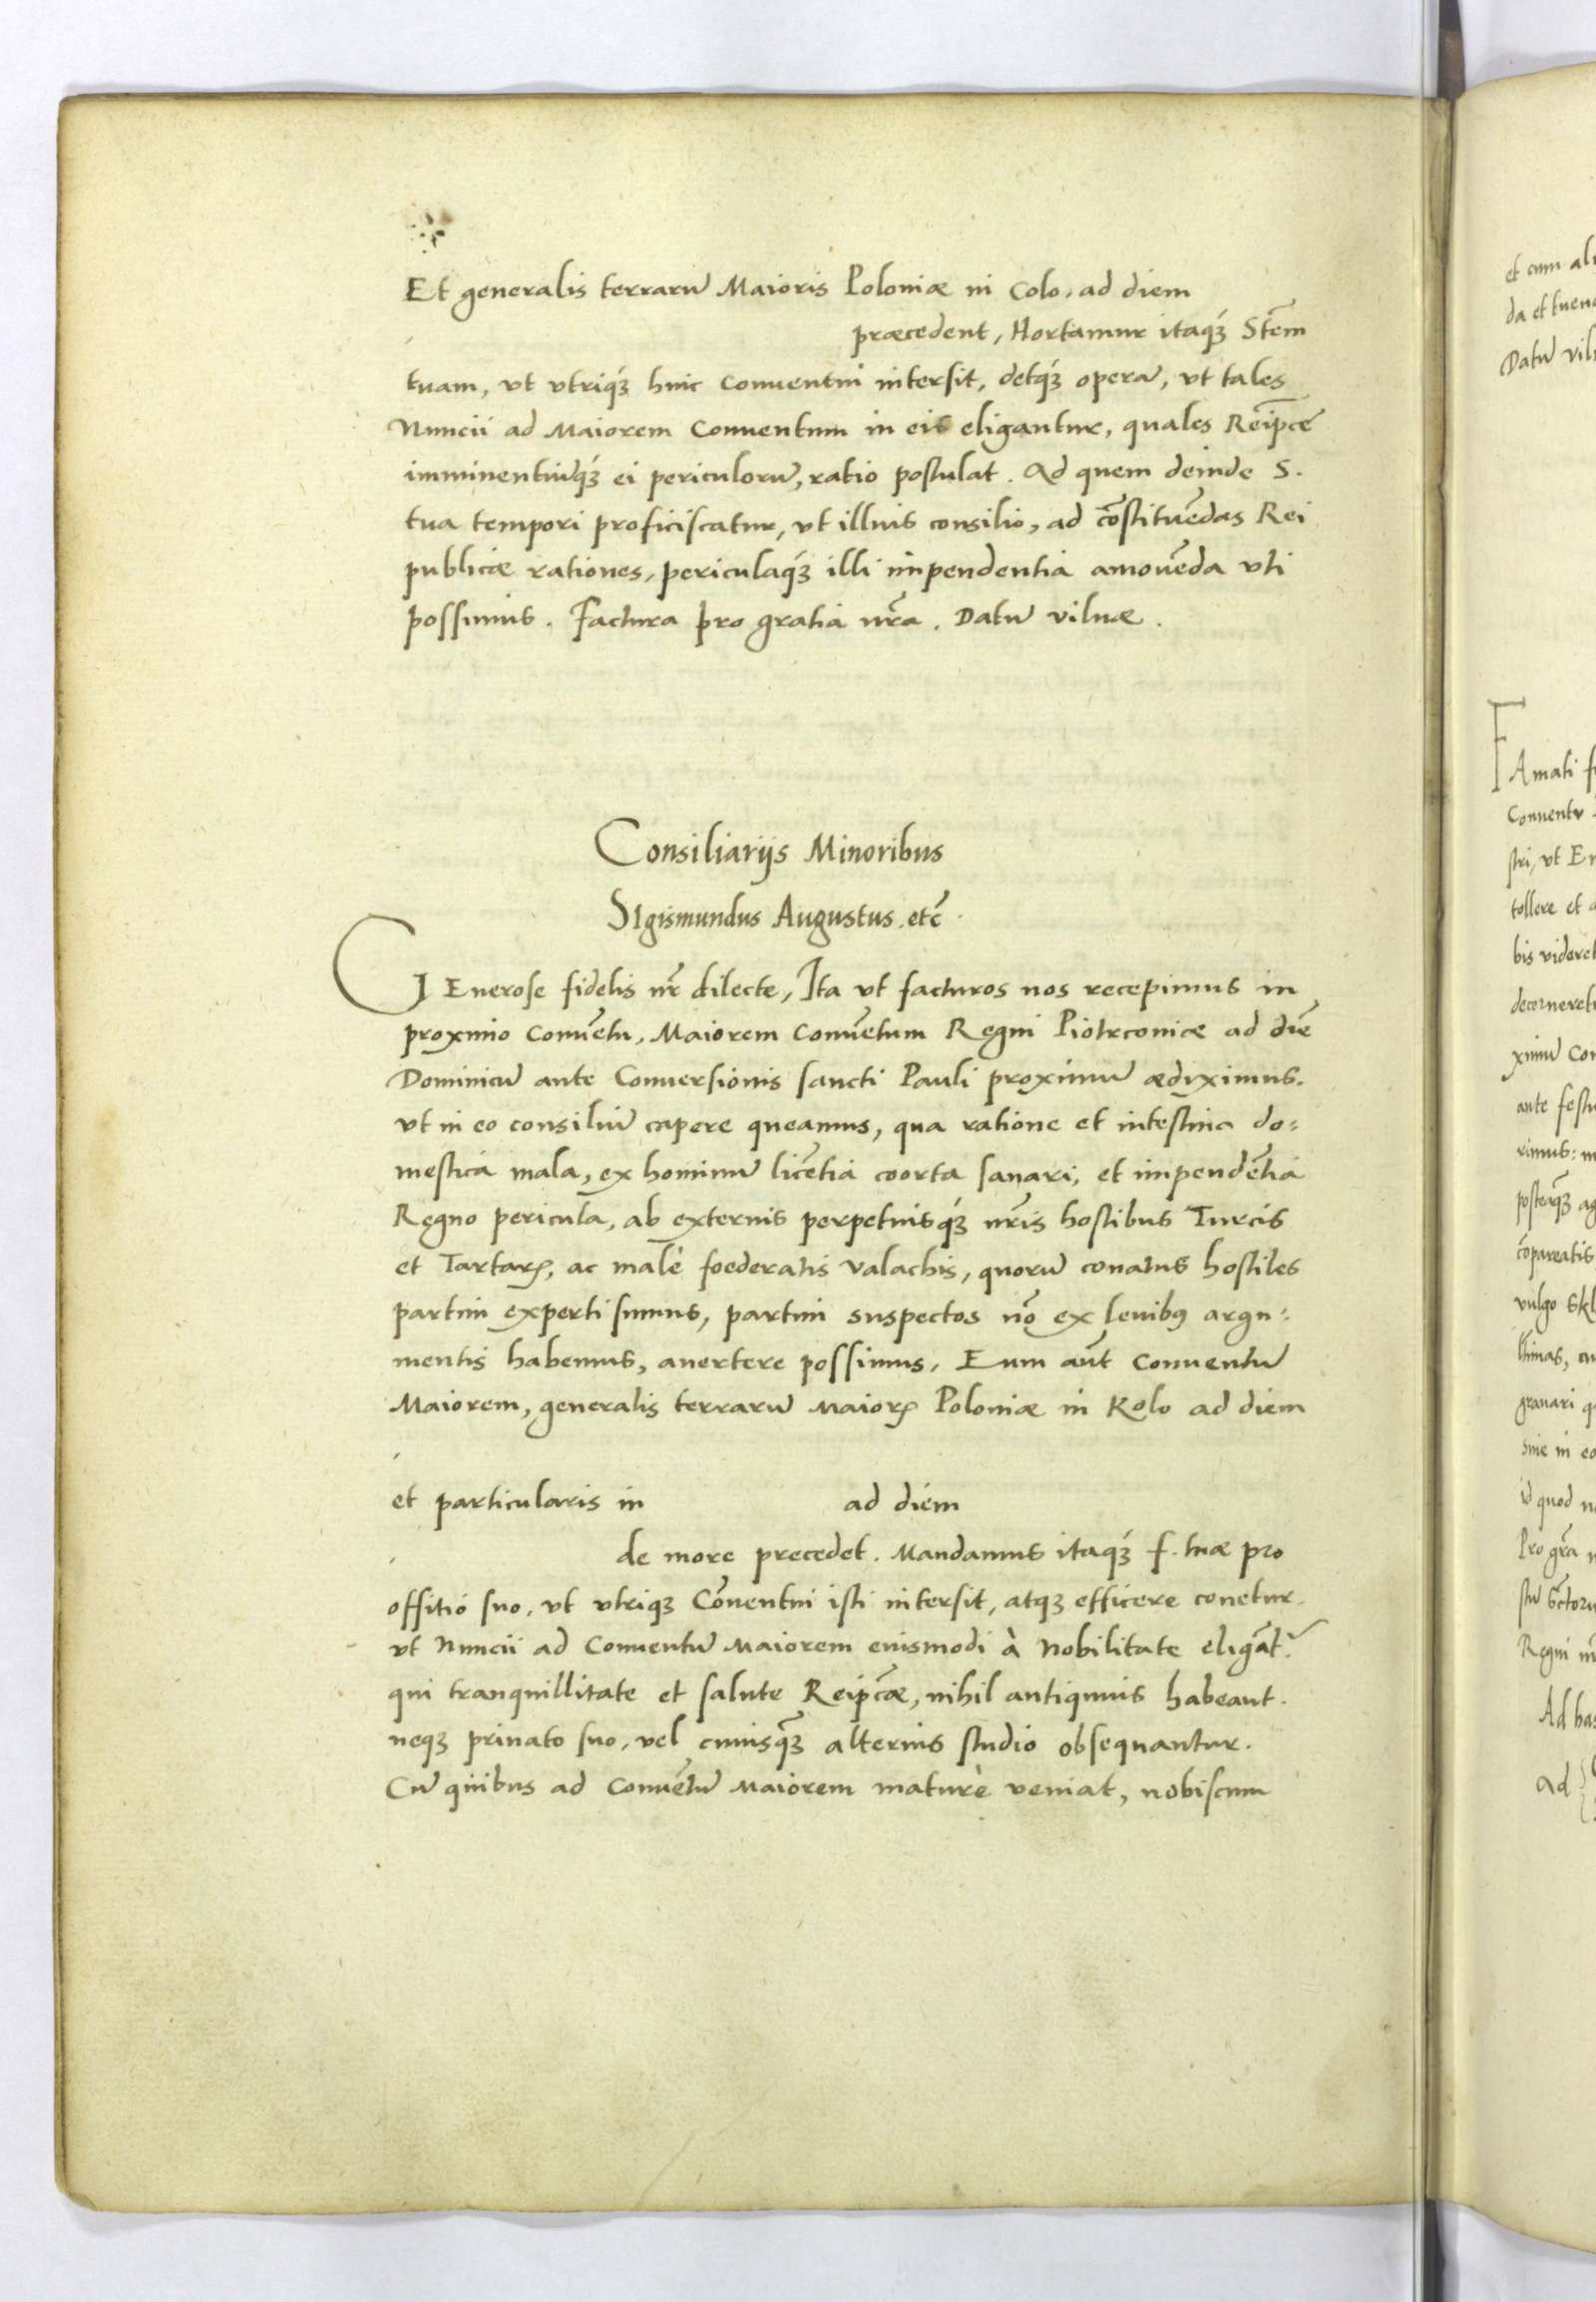 Et generalis terrarū Maioris Poloniæ in Colo, ad diem
præcedent, Hortamur itaq́ꝫ Stēm
tuam, vt vtriq́ꝫ huic Conuentui intersit, detq́ꝫ operā, vt tales
Nuncii ad Maiorem Conuentum in eis eligantur, quales Reipc̄e
imminentiūq́ꝫ ei periculorū, ratio postulat. Ad quem deinde S.
tua tempori proficiscatur, vt illius consilio, ad cōstituēdas Rei
publicæ rationes, periculaq́ꝫ illi impendentia amouēda vti
possimus. Factura pro gratia nr̄a. Datū vilnæ.
Consiliarijs Minoribus
SIgismundus Augustus. etc̄.
GEnerose fidelis nr̄ dilecte, Ita vt facturos nos recepimus in
proximo Conuētu, Maiorem Conuētum Regni Piotrconiæ ad diē
Dominicū ante Conuersionis sancti Pauli proximū ædiximus.
vt in eo consiliū capere queamus, qua ratione et intestina do=
mestica mala, ex hominū licētia coorta sanari, et impendētia
Regno pericula, ab externis perpetuisq́ꝫ nr̄is hostibus Turcis
et Tartarꝭ, ac malè foederatis valachis, quorū conatus hostiles
partim experti sumus, partim suspectos nō ex leuibꝯ argu=
mentis habemus, auertere possimus, Eum aūt Conuentū
Maiorem, generalis terrarū Maiorꝭ Poloniæ in Kolo ad diem
et particularis in ad diem
de more precedet. Mandamus itaq́ꝫ f. tuæ pro
offitio suo, vt vtriqꝫ Cōuentui isti intersit, atqꝫ efficere conetur.
vt Nuncii ad Conuentū Maiorem eiusmodi à Nobilitate eligāt᷑.
qui tranquillitate et salute Reipc̄æ, nihil antiquius habeant.
neqꝫ priuato suo, vel cuiusq̄ꝫ alterius studio obsequantur.
Cū quibus ad Conuētū Maiorem maturè veniat, nobiscum
et cum
Datū
Conuentu
tollere et
ante
vulgo
granari
id quod
Regni
Ad